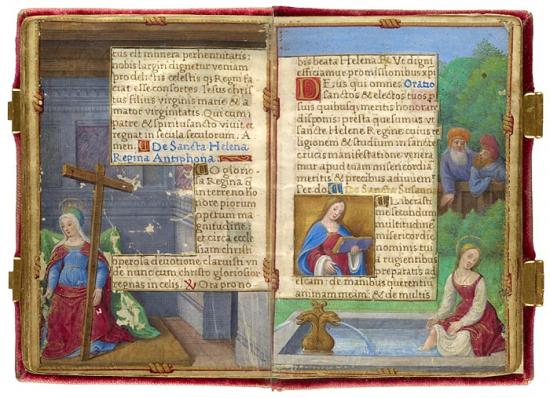 cus est munera perhennitatis:
nobis largiri dignetur veniam
pro delictis celestis qs Regni fa
ciat esse consortes. Iesus chris
tus filius virginis marie & a
mator virginitatis. Qui cum
patre & spiritu sancto vivit et
regnat in secula seculorum.
men. De Sancta Helena
Regina Antiphona.
O glorio
sa Regina q
in terreno ho
nore piorum
opem tua ma
gnitudine
et circa eccle
siam christi
operosa devotione claruisti vn
de nunc cum christo gloriosior
regnas in celis. Ora pro no
bis beata Helena. Vt digni
efficiamur promissionibus xpi
Deus qui omnes Oratio
sanctos & electos tuos p
suis quibusq meritis honorare
disponis: presta quesumus vt
sancte Helene Regine cuius re
ligionem & studium in sancte
crucis manifestatione venera
mur apud tuam misericordiam
meritis & precibus adiuvemur
Per do. De Sancta Susanna
Liberasti
me secundum
multitudinem
misericordie
nominis tui
a rugientibus
preparatis ad
escam: de manibus querentium
animam meam: & de multis